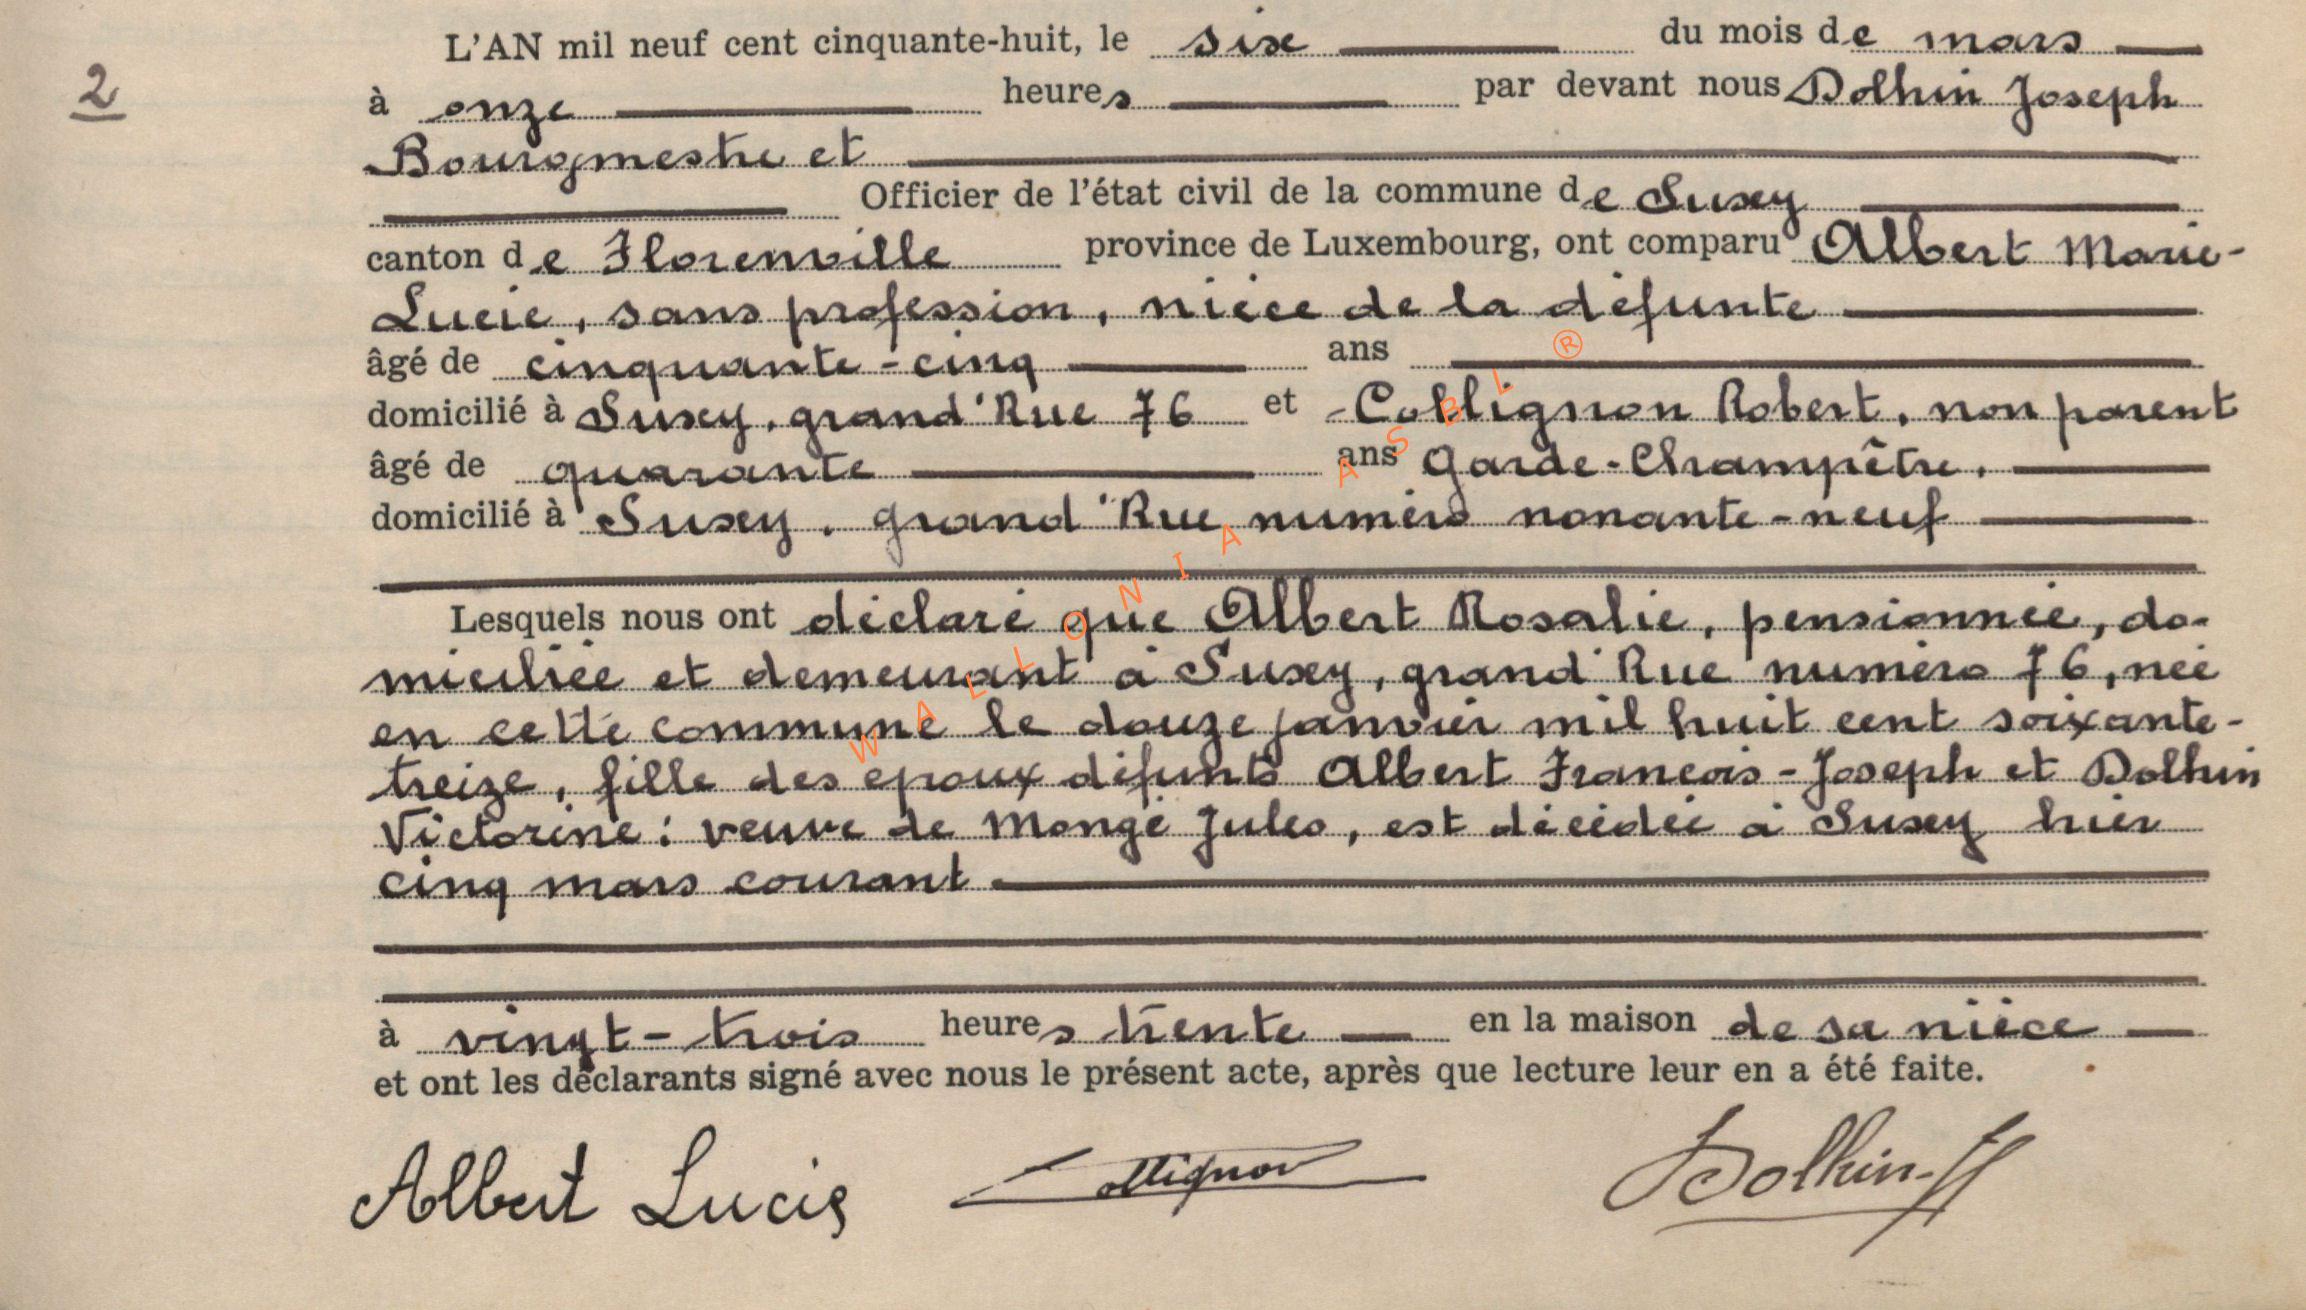 L'AN mil neuf cent cinquante-huit, le six du mois de mars
2
à onze heures par devant nous Dolhin Joseph
Bourgmestre et
Officier de l'état civil de la commune de Suxy
canton de Florenville province de Luxembourg, ont comparu Albert Marie-
Lucie, sans profession, nièce de la défunte
âgé de cinquante-cinq ans
domicilié à Suxy, grand'Rue 76 et Collignon Robert, non parent
âgé de quarante ans Garde-Champêtre,
domicilié à Suxy, grand'Rue numéro nonante-neuf
Lesquels nous ont déclaré que Albert Rosalie, pensionnée, do-
miciliée et demeurant à Suxy, grand'Rue numéro 76, née
en cette commune le douze janvier mil huit cent soixante-
treize, fille des époux défunts Albert François-Joseph et Dolhin
Victorine: veuve de Mongé Jules, est décédée à Suxy hier
cinq mars courant
à vingt-trois heures trente en la maison de sa nièce
et ont les déclarants signé avec nous le présent acte, après que lecture leur en a été faite.
Albert Lucie Collignon Dolhin
WALLONIA ASBL ®